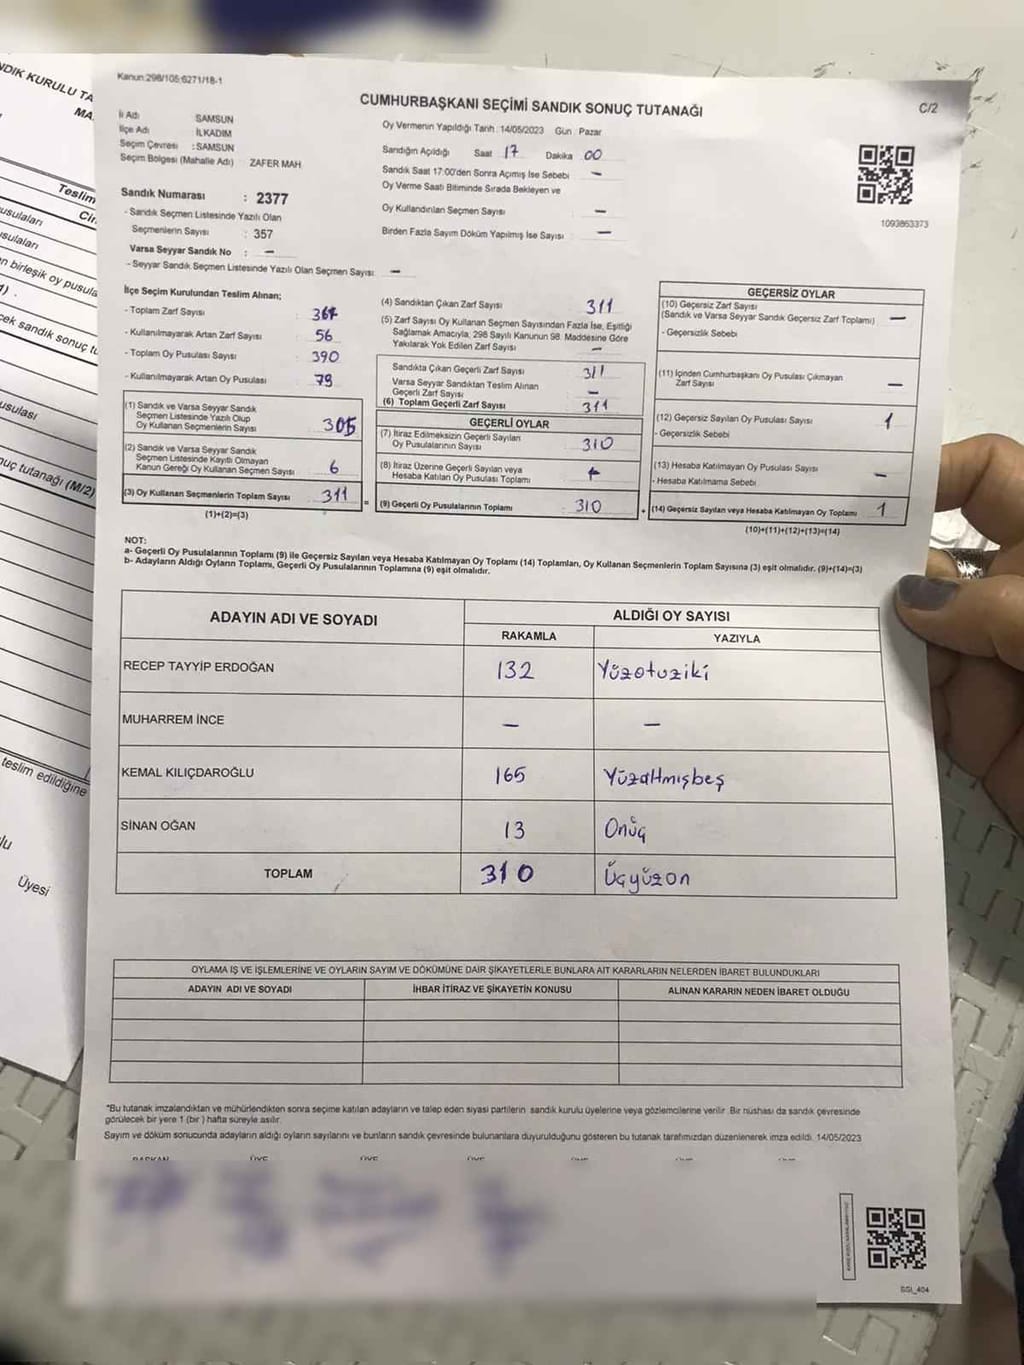 NDIK KURULU TA
MA.
Teslim
Cin
usulaları
sulaları
n birleşik oy pusula
cek sandık sonuç tu
usulası
nuç tutanağı (M/2)
teslim edildiğine
Üyesi
Kanun:298/105;6271/18-1
CUMHURBAŞKANI SEÇİMİ SANDIK SONUÇ TUTANAĞI
C/2
İl Adı SAMSUN
İlçe Adı İLKADIM
Seçim Çevresi : SAMSUN
Seçim Bölgesi (Mahalle Adı) ZAFER MAH.
Oy Vermenin Yapıldığı Tarih :14/05/2023 Gün : Pazar
Sandığın Açıldığı Saat 17 Dakika 00
Sandık Saat 17:00'den Sonra Açımış İse Sebebi –
Oy Verme Saati Bitiminde Sırada Bekleyen ve
Oy Kullandırılan Seçmen Sayısı –
Birden Fazla Sayım Döküm Yapılmış İse Sayısı –
1093863373
Sandık Numarası : 2377
- Sandık Seçmen Listesinde Yazılı Olan
Seçmenlerin Sayısı : 357
Varsa Seyyar Sandık No : –
- Seyyar Sandık Seçmen Listesinde Yazılı Olan Seçmen Sayısı: –
İlçe Seçim Kurulundan Teslim Alınan;
- Toplam Zarf Sayısı
- Kullanılmayarak Artan Zarf Sayısı 56
- Toplam Oy Pusulası Sayısı 390
- Kullanılmayarak Artan Oy Pusulası 79
(1) Sandık ve Varsa Seyyar Sandık
Seçmen Listesinde Yazılı Olup
Oy Kullanan Seçmenlerin Sayısı 305
(2) Sandık ve Varsa Seyyar Sandık
Seçmen Listesinde Kayıtlı Olmayan
Kanun Gereği Oy Kullanan Seçmen Sayısı 6
(3) Oy Kullanan Seçmenlerin Toplam Sayısı 311 =
(1)+(2)=(3)
(4) Sandıktan Çıkan Zarf Sayısı 311
(5) Zarf Sayısı Oy Kullanan Seçmen Sayısından Fazla İse, Eşitliği
Sağlamak Amacıyla, 298 Sayılı Kanunun 98. Maddesine Göre
Yakılarak Yok Edilen Zarf Sayısı –
Sandıkta Çıkan Geçerli Zarf Sayısı 311
Varsa Seyyar Sandıktan Teslim Alınan
Geçerli Zarf Sayısı –
(6) Toplam Geçerli Zarf Sayısı 311
GEÇERLİ OYLAR
(7) İtiraz Edilmeksizin Geçerli Sayılan
Oy Pusulalarının Sayısı 310
(8) İtiraz Üzerine Geçerli Sayılan veya
Hesaba Katılan Oy Pusulası Toplamı
(9) Geçerli Oy Pusulalarının Toplamı 310 +
GEÇERSİZ OYLAR
(10) Geçersiz Zarf Sayısı
(Sandık ve Varsa Seyyar Sandık Geçersiz Zarf Toplamı) –
- Geçersizlik Sebebi
(11) İçinden Cumhurbaşkanı Oy Pusulası Çıkmayan
Zarf Sayısı –
(12) Geçersiz Sayılan Oy Pusulası Sayısı 1
- Geçersizlik Sebebi
(13) Hesaba Katılmayan Oy Pusulası Sayısı –
- Hesaba Katılmama Sebebi
(14) Geçersiz Sayılan veya Hesaba Katılmayan Oy Toplamı 1
(10)+(11)+(12)+(13)=(14)
NOT:
a- Geçerli Oy Pusulalarının Toplamı (9) ile Geçersiz Sayılan veya Hesaba Katılmayan Oy Toplamı (14) Toplamları, Oy Kullanan Seçmenlerin Toplam Sayısına (3) eşit olmalıdır. (9)+(14)=(3)
b- Adayların Aldığı Oyların Toplamı, Geçerli Oy Pusulalarının Toplamına (9) eşit olmalıdır.
ADAYIN ADI VE SOYADI
ALDIĞI OY SAYISI
RAKAMLA YAZIYLA
RECEP TAYYİP ERDOĞAN 132 Yüzotuziki
MUHARREM İNCE – –
KEMAL KILIÇDAROĞLU 165 Yüzaltmışbeş
SİNAN OĞAN 13 Onüç
TOPLAM 310 Üçyüzon
OYLAMA İŞ VE İŞLEMLERİNE VE OYLARIN SAYIM VE DÖKÜMÜNE DAİR ŞİKAYETLERLE BUNLARA AİT KARARLARIN NELERDEN İBARET BULUNDUKLARI
ADAYIN ADI VE SOYADI İHBAR İTİRAZ VE ŞİKAYETİN KONUSU ALINAN KARARIN NEDEN İBARET OLDUĞU
*Bu tutanak imzalandıktan ve mühürlendikten sonra seçime katılan adayların ve talep eden siyasi partilerin sandık kurulu üyelerine veya gözlemcilerine verilir. Bir nüshası da sandık çevresinde
görülecek bir yere 1 (bir) hafta süreyle asılır.
Sayım ve döküm sonucunda adayların aldığı oyların sayılarını ve bunların sandık çevresinde bulunanlara duyurulduğunu gösteren bu tutanak tarafımızdan düzenlenerek imza edildi. 14/05/2023
BAŞKAN ÜYE ÜYE ÜYE
SSI_404